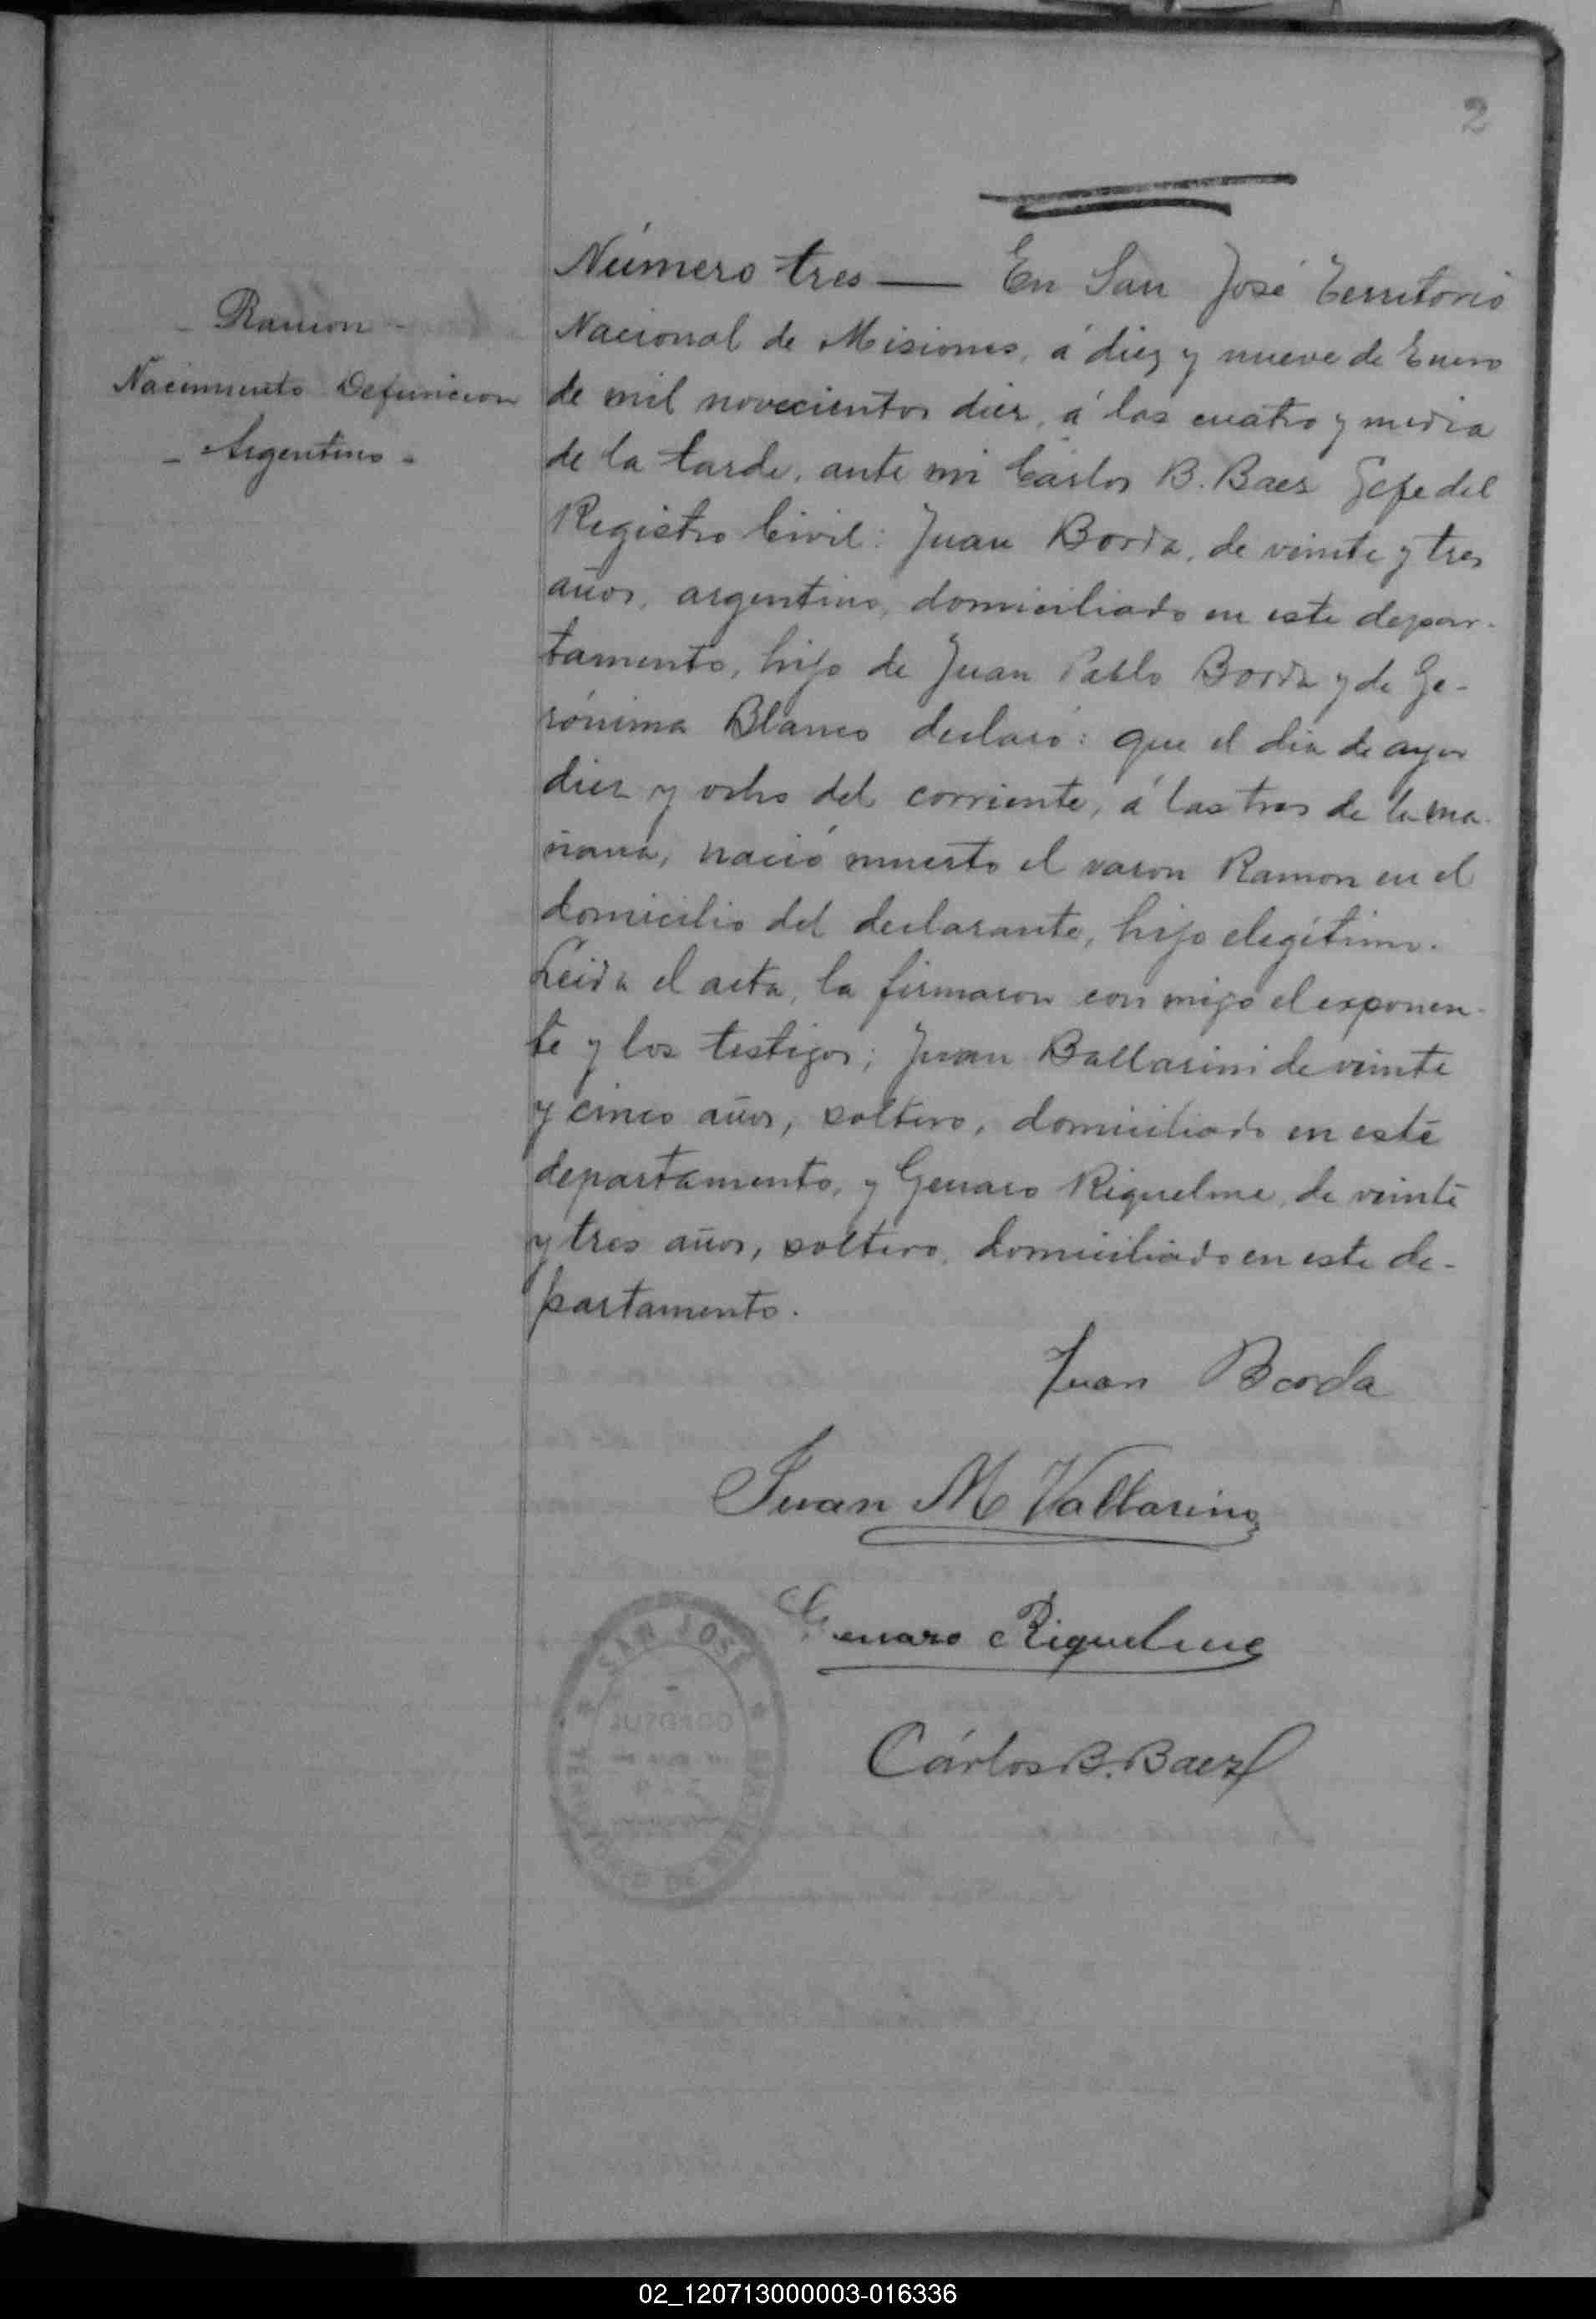 2
Ramon
Nacimiento Defuncion
- Argentino -
Número tres — En San José Territorio
Nacional de Misiones, á diez y nueve de Enero
de mil novecientos diez, á las cuatro y media
de la tarde, ante mi Cárlos B. Baez Gefe del
Registro Civil: Juan Borda, de veinte y tres
años, argentino, domiciliado en este depar-
tamento, hijo de Juan Pablo Borda y de Ge-
rónima Blanco declaró: que el dia de ayer
diez y ocho del corriente, á las tres de la ma-
ñana, nació muerto el varon Ramon en el
domicilio del declarante, hijo elegítimo.
Leida el acta, la firmaron con migo el exponen-
te y los testigos; Juan Ballarini de veinte
y cinco años, soltero, domiciliado en este
departamento, y Genaro Riquelme, de veinte
y tres años, soltero, domiciliado en este de-
partamento.
Juan Borda
Juan M Vallarino
Genaro Riquelme
SAN JOSÉ
JUZGADO
Cárlos B. Baez
02_120713000003-016336